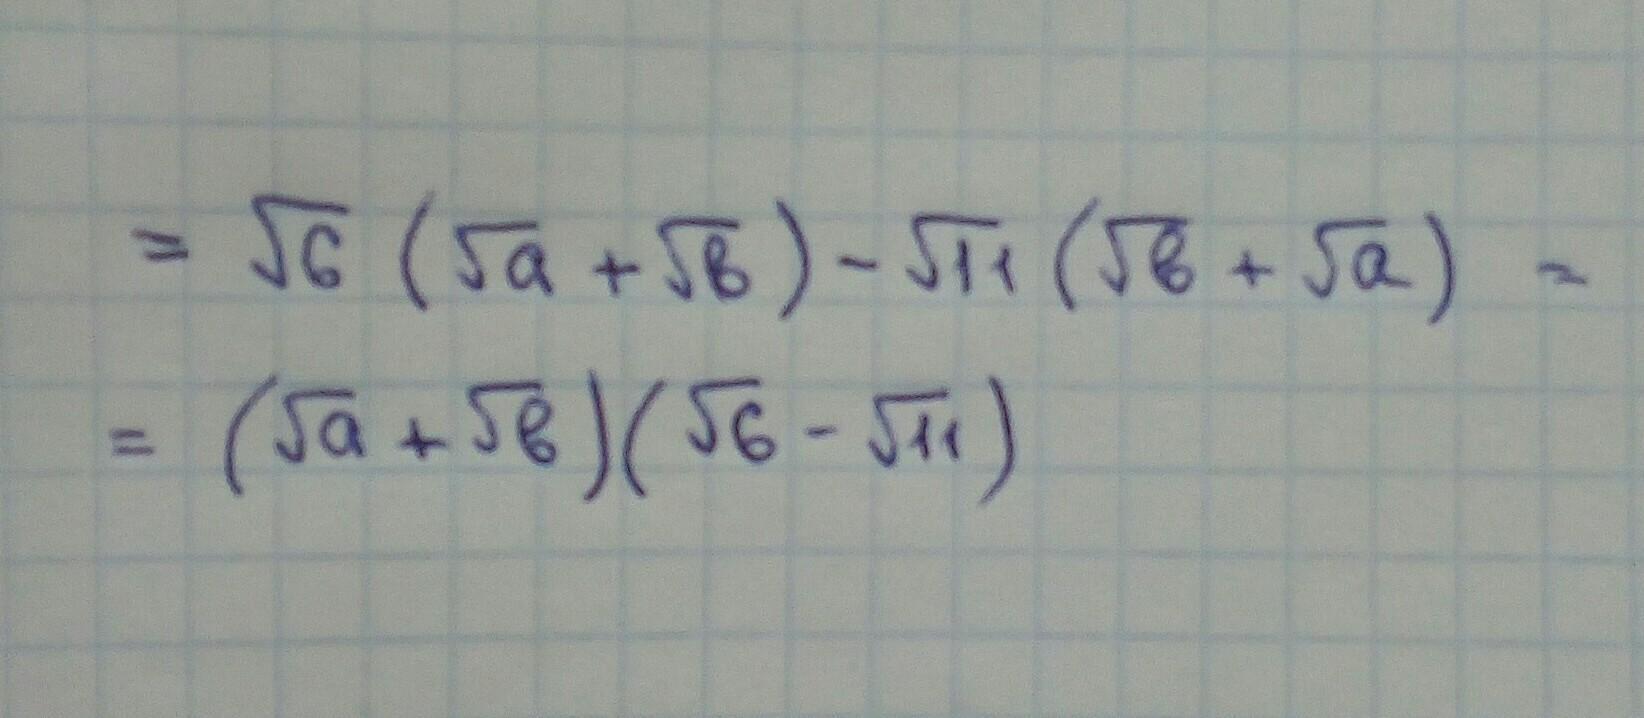 = √6 (√a + √b) - √11 (√b + √a) =
= (√a + √b)(√6 - √11)